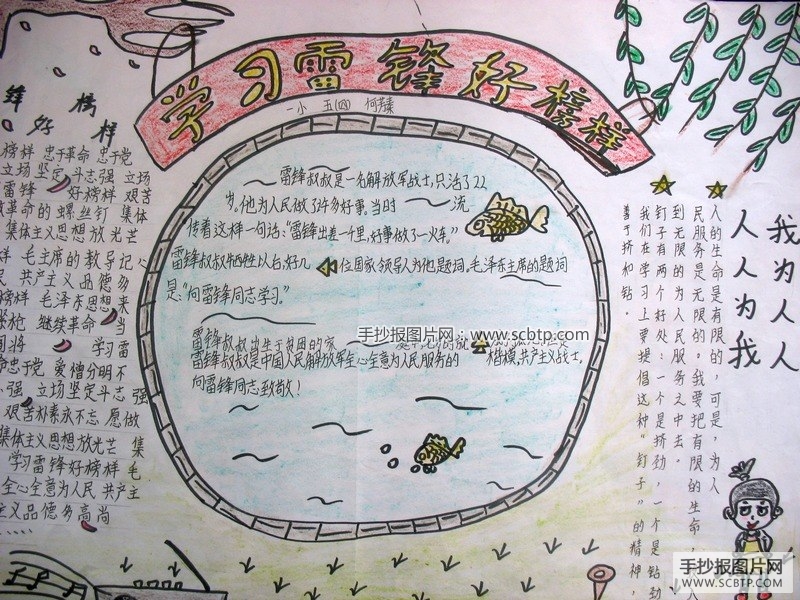 学习雷锋好榜样
一小 五(四) 何芳臻
锋 榜
好 样
榜样 忠于革命 忠于党
立场 坚定斗志强 立场
雷锋 好榜样 艰苦
革命的螺丝钉 集体
集体主义思想放光芒
样 毛主席的教导记心
共产主义品德多
榜样 毛泽东思想 来
枪 继续革命 当
学习雷
忠于党 爱憎分明不
强 立场坚定斗志 强
艰苦朴素永不忘 愿做
集体主义思想放光芒 集
学习雷锋好榜样 毛
全心全意为人民 共产主
主义品德多高尚
雷锋叔叔是一名解放军战士,只活了22
岁。他为人民做了许多好事。当时 流
传着这样一句话:“雷锋出差一千里,好事做了一火车。”
雷锋叔叔牺牲以后,好几 位国家领导人为他题词。毛泽东主席的题词
是:“向雷锋同志学习。”
雷锋叔叔出生于贫困的家
雷锋叔叔是中国人民解放军全心全意为人民服务的 楷模,共产主义战士,
向雷锋同志致敬!
手抄报图片网:www.scbtp.com
我为人人
人人为我
人的生命是有限的,可是,为人
民服务是无限的,我要把有限的生命,
到无限的为人民服务之中去。
钉子有两个好处:一个是挤劲,一个是钻劲
我们在学习上要提倡这种“钉子”的精神,
善于挤和钻。
手抄报图片网
WWW.SCBTP.COM